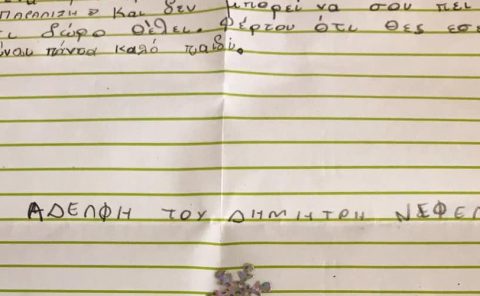 παράλυση και δεν μπορεί να σου πει
τι δώρο θέλει. Φέρτου ότι θες εσε
είναι πάντα καλό παιδί.
ΑΔΕΛΦΗ ΤΟΥ ΔΗΜΗΤΡΗ ΝΕΦΕΛ